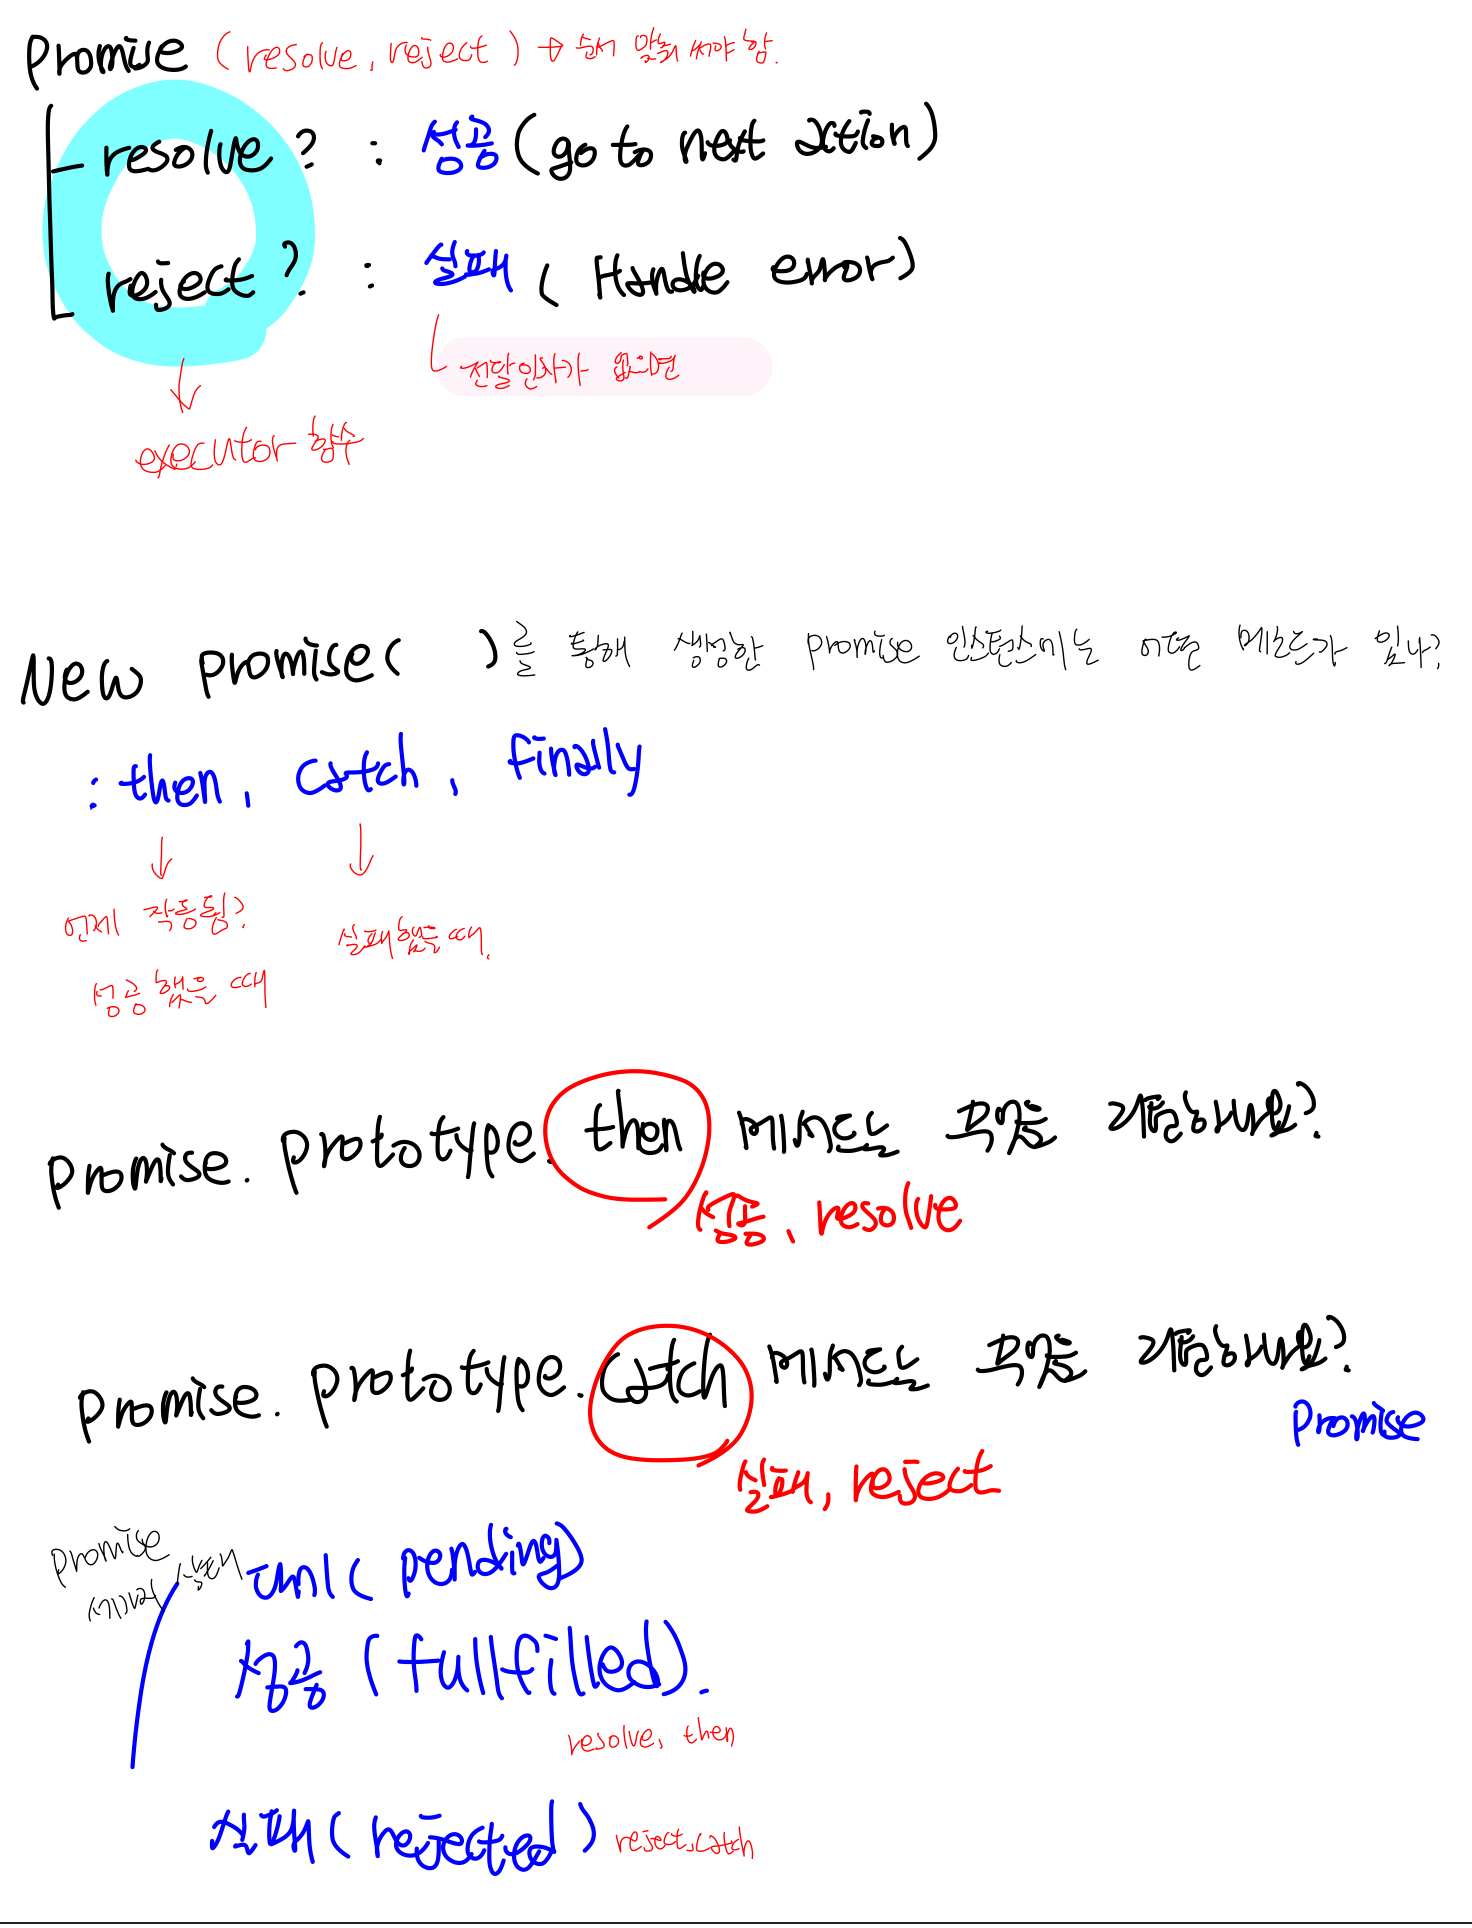 Promise (resolve, reject) → 순서 맞춰 써야 함.
resolve? : 성공 (go to next action)
reject? : 실패 (Handle error)
전달인자가 없으면
executor 함수
New promise( )를 통해 생성한 promise 인스턴스에는 어떤 메소드가 있나?
: then, catch, finally
언제 작동됨?
성공했을 때
실패했을 때.
Promise. prototype. then 메서드는 무엇을 리턴하나요?
성공, resolve
Promise. prototype. catch 메서드는 무엇을 리턴하나요?
Promise
실패, reject
Promise
세가지 상태
대기 (pending)
성공 (fullfilled).
resolve, then
실패 (rejected) reject, catch